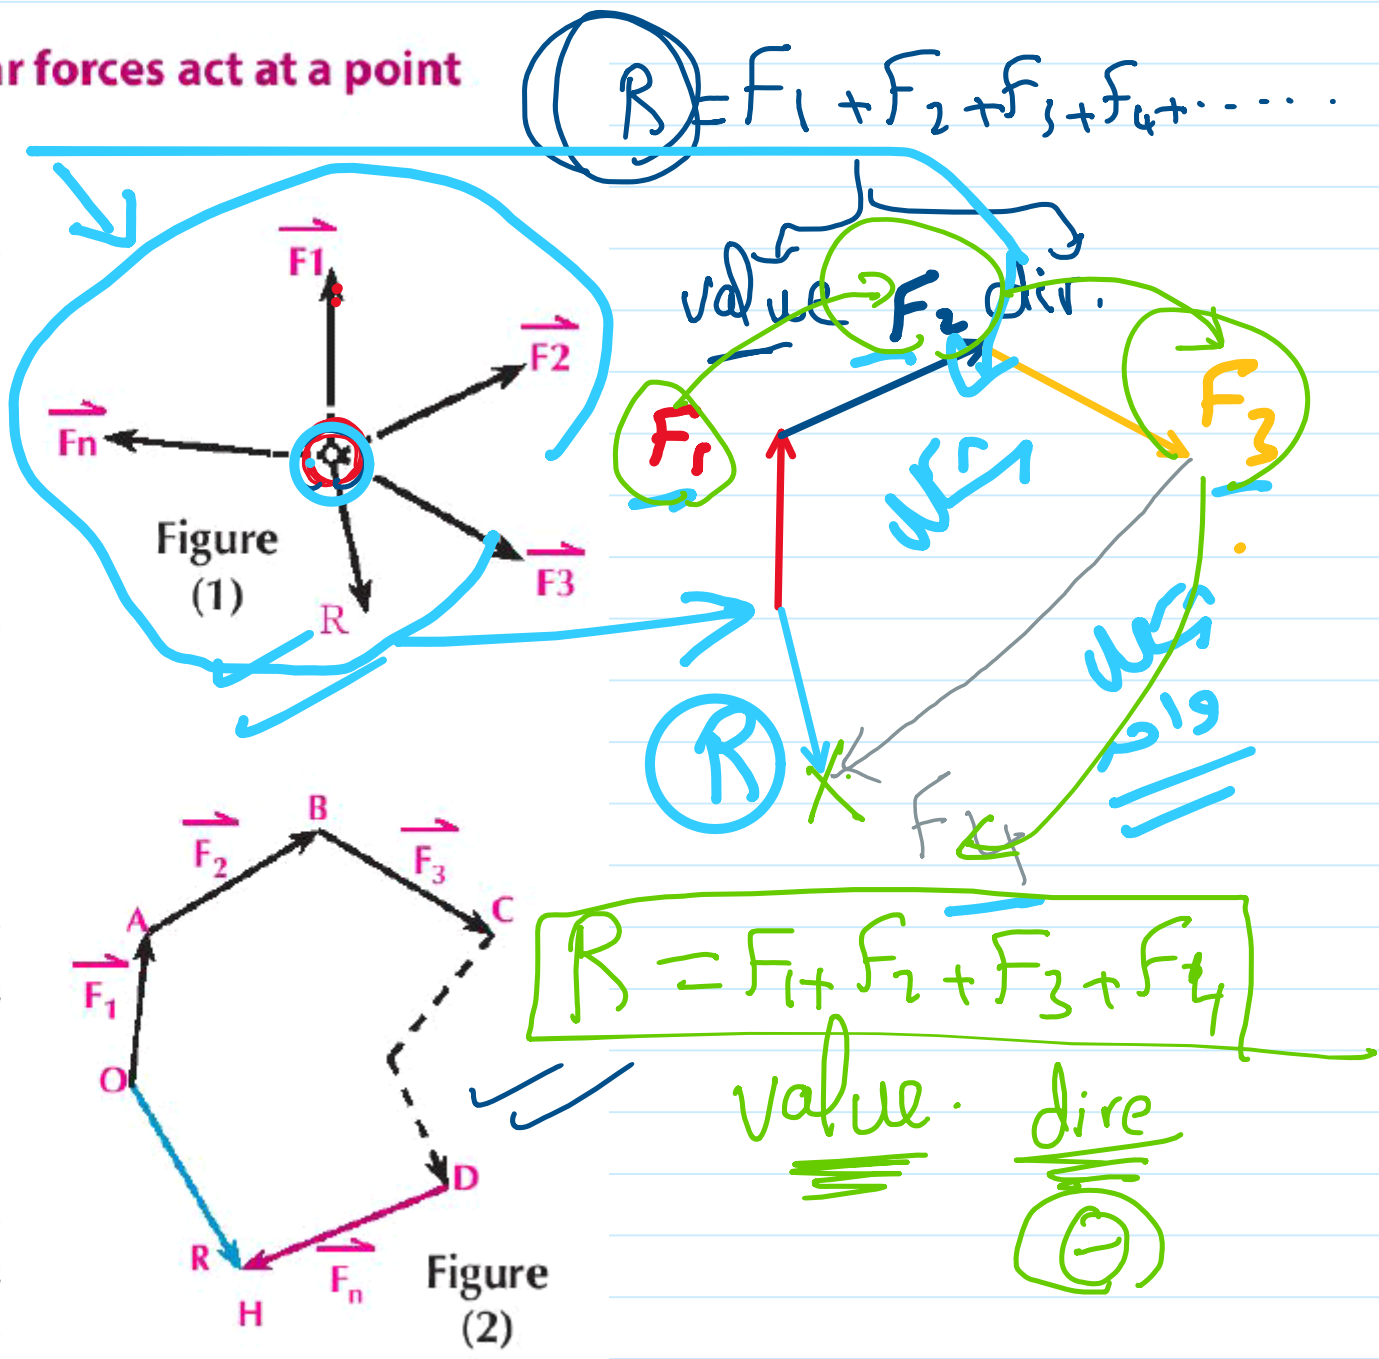 r forces act at a point
R = F1 + F2 + F3 + F4 + ......
value dir.
F1
F2
F3
Fn
R
Figure
(1)
F1
F2
F3
R
F4
B
F2
F3
A
C
F1
O
D
R
Fn
H
Figure
(2)
R = F1 + F2 + F3 + F4
value. dire
θ